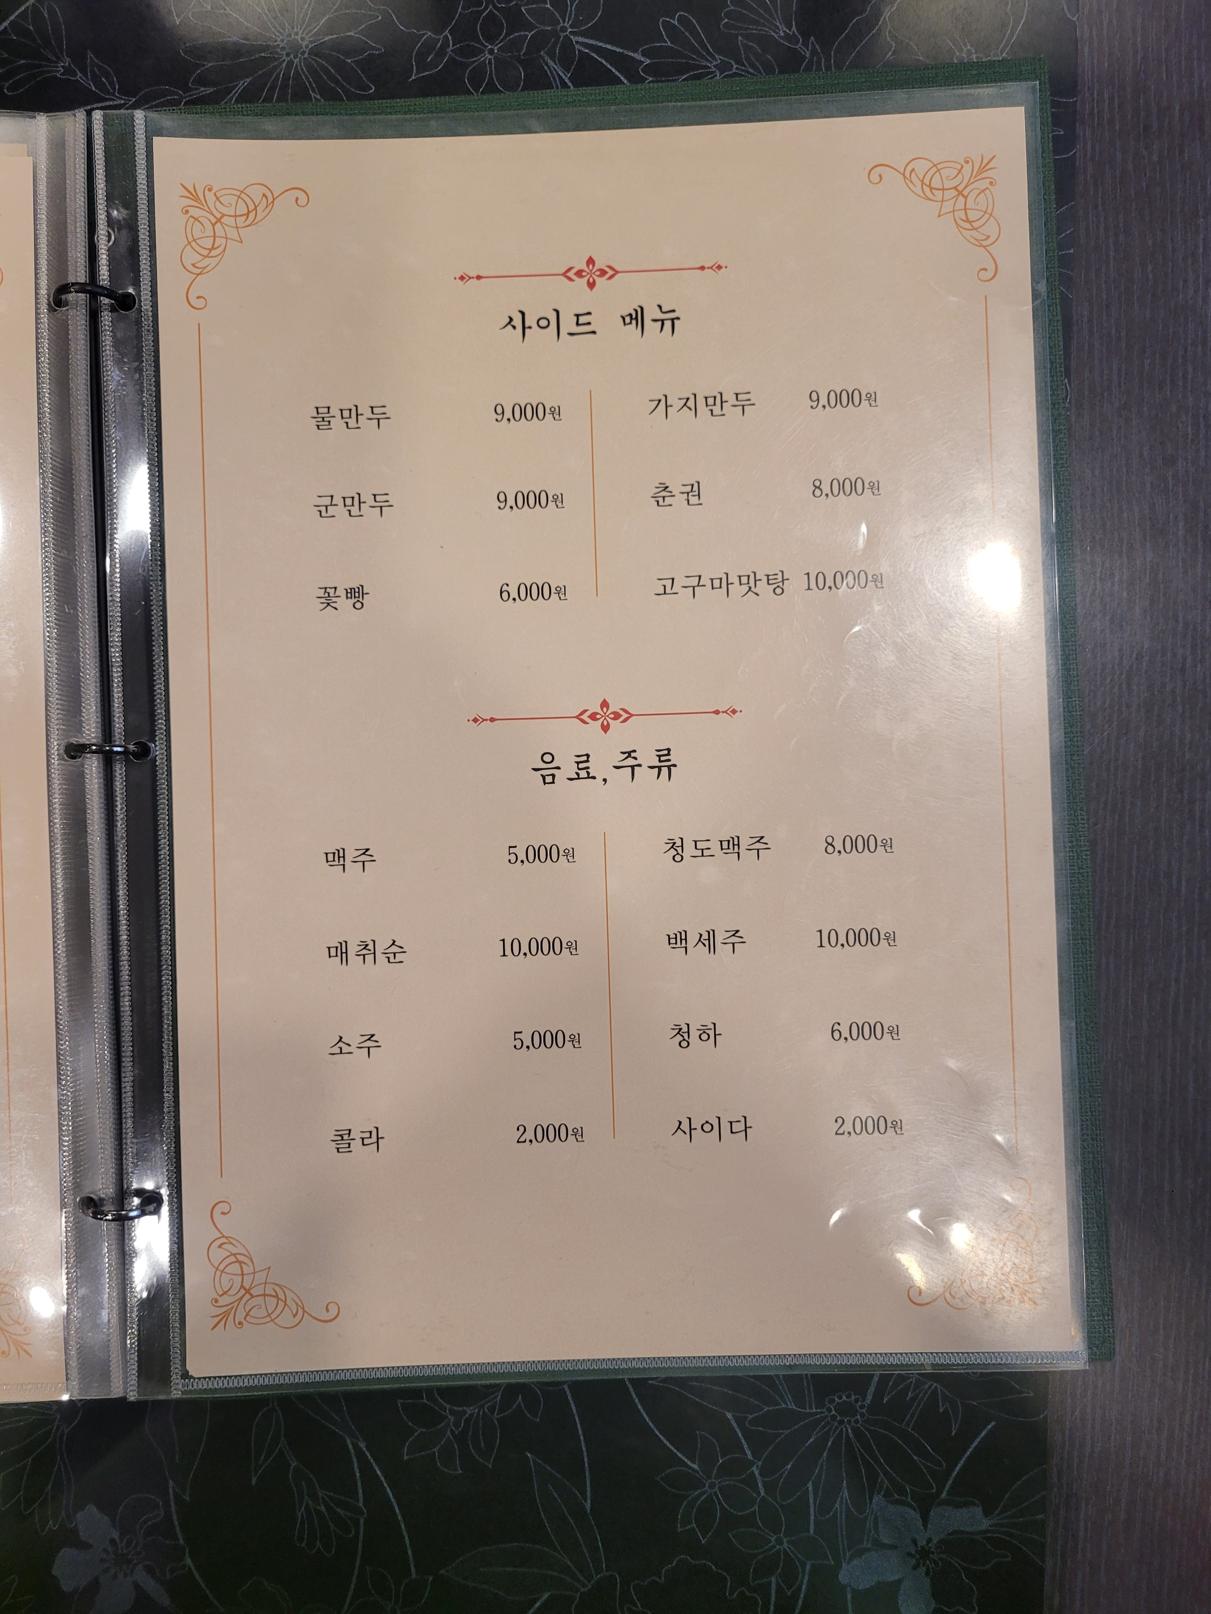 사이드 메뉴
물만두 9,000원 가지만두 9,000원
군만두 9,000원 춘권 8,000원
꽃빵 6,000원 고구마맛탕 10,000원
음료,주류
맥주 5,000원 청도맥주 8,000원
매취순 10,000원 백세주 10,000원
소주 5,000원 청하 6,000원
콜라 2,000원 사이다 2,000원